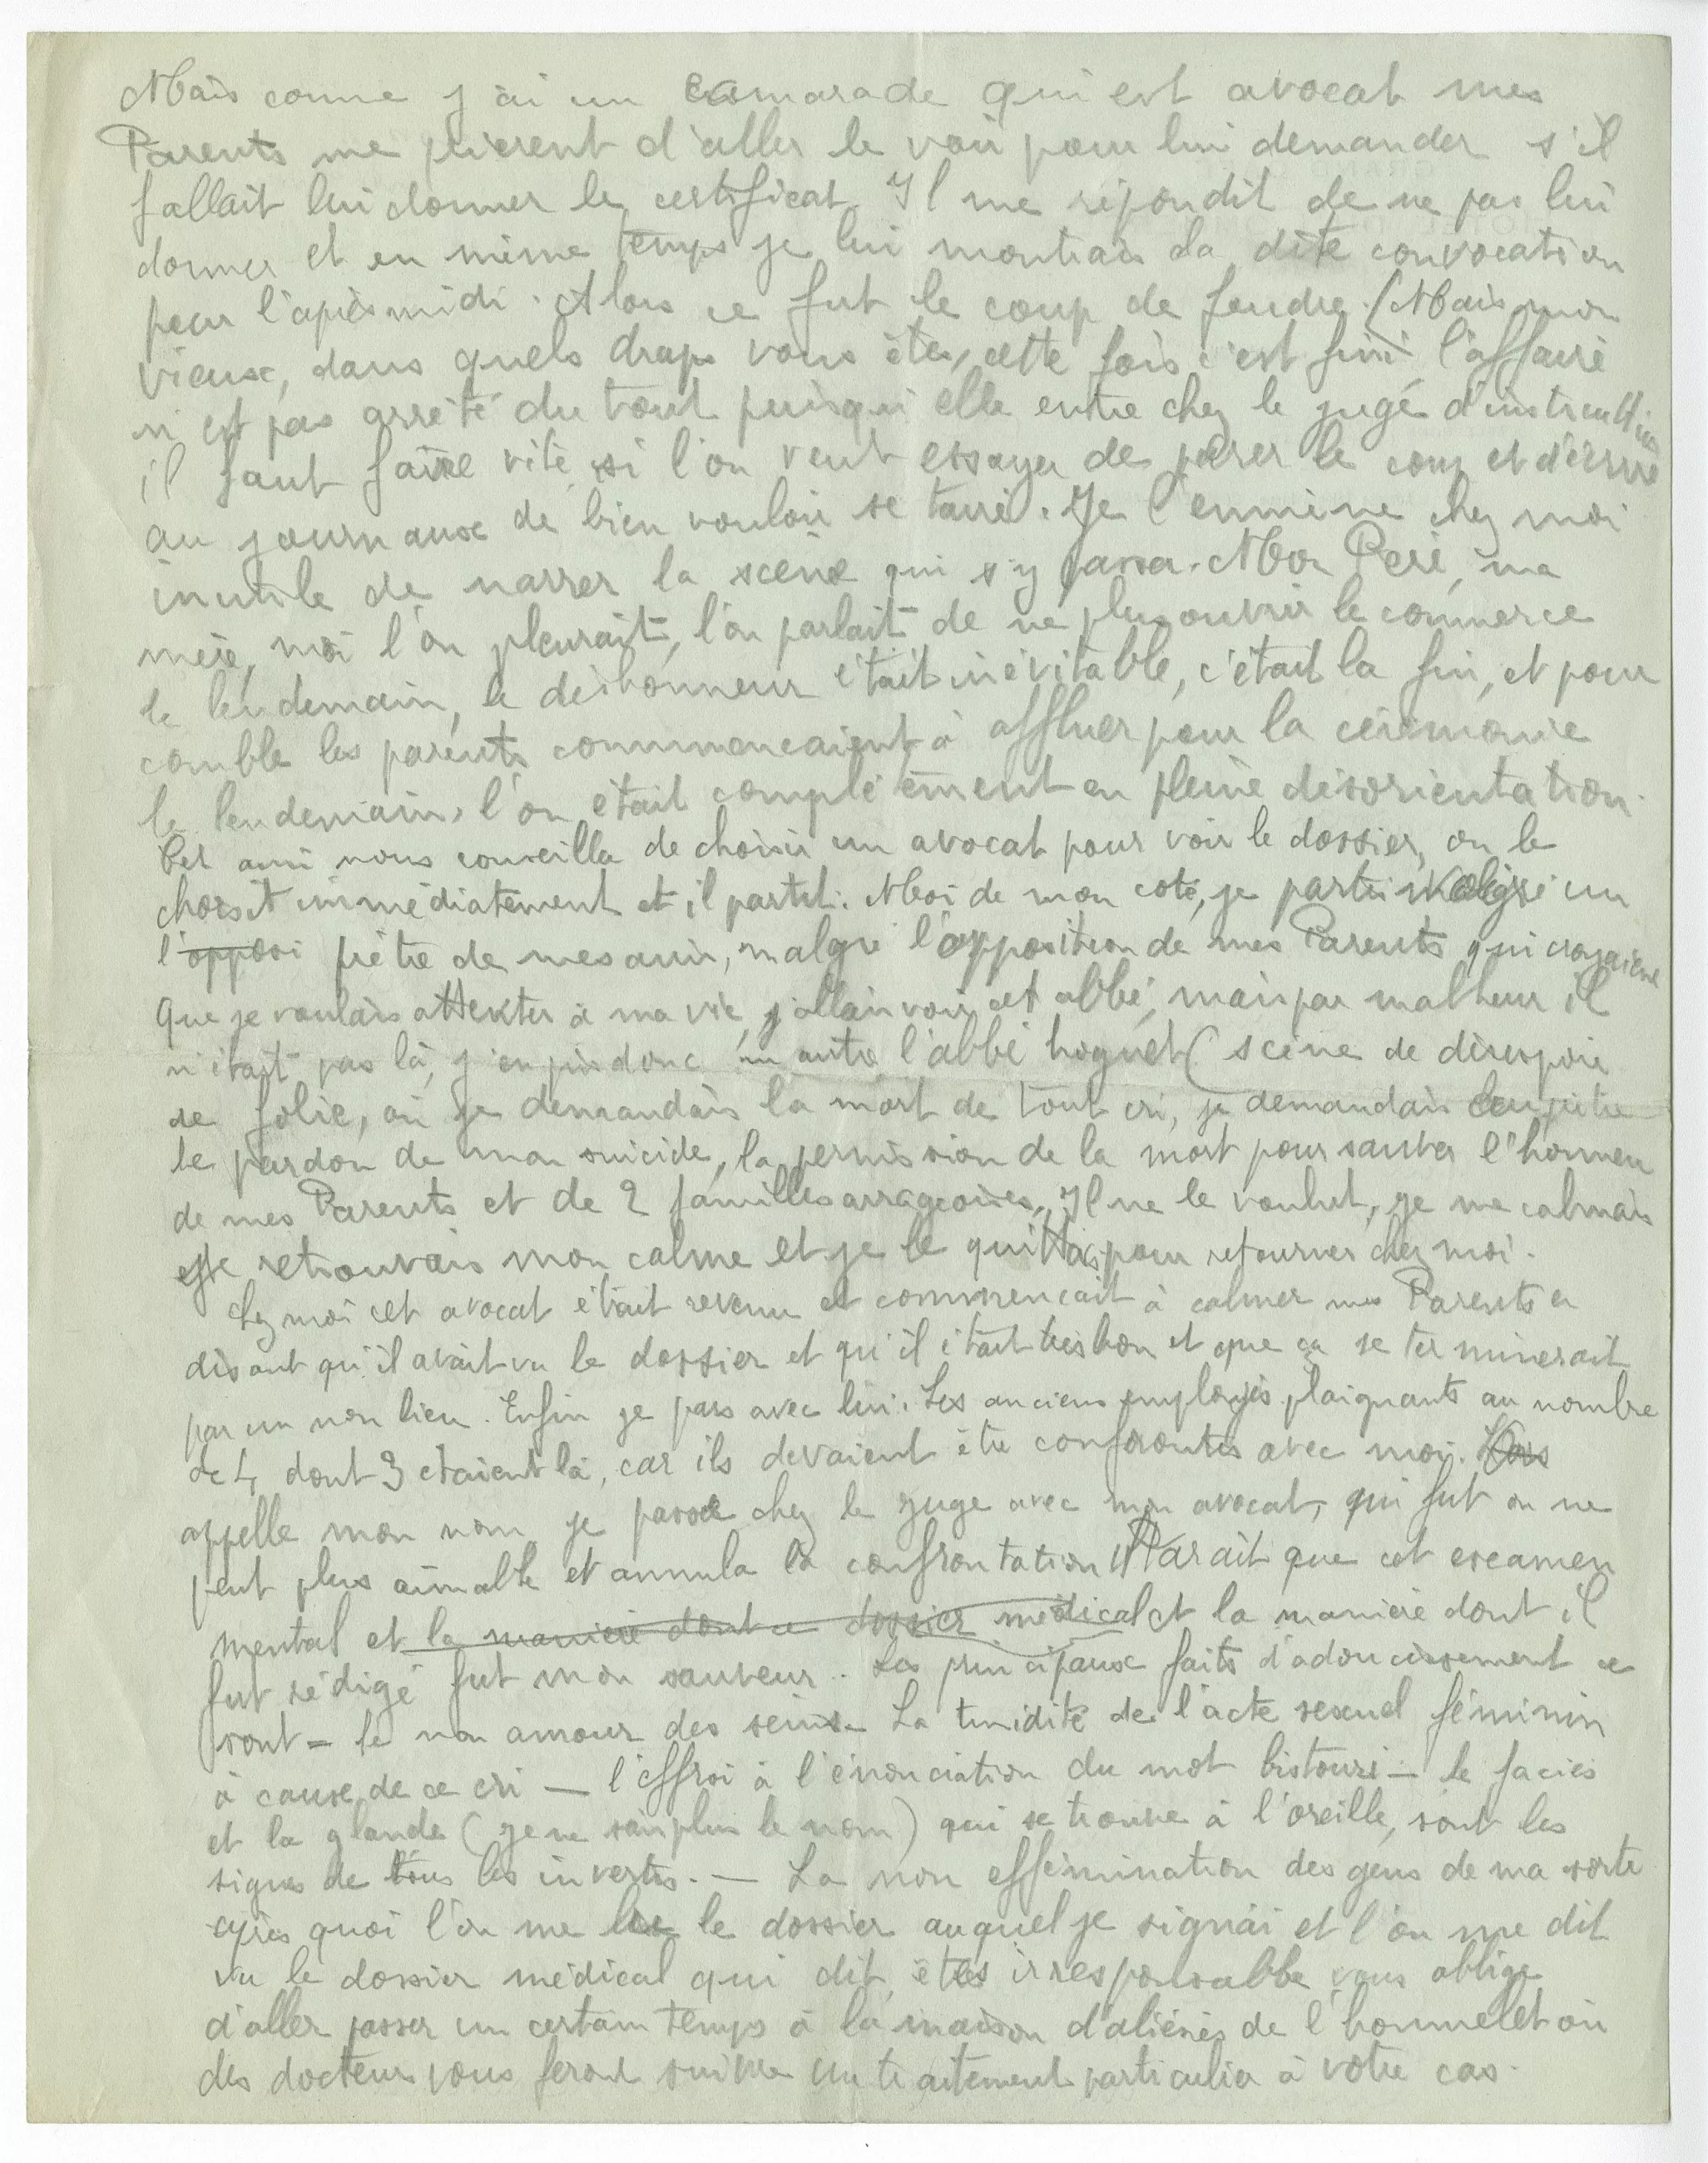 Mais comme j'ai un camarade qui est avocat mes
Parents me prièrent d'aller le voir pour lui demander s'il
fallait lui donner le certificat. Il me répondit de ne pas lui
donner et en même temps je lui montrais la dite convocation
pour l'après midi. Alors ce fut le coup de foudre. (Mais mon
vieux, dans quels draps vous êtes, cette fois c'est fini l'affaire
n'est pas arrêté du tout puisqu'elle entre chez le juge d'instruction
il faut faire vite si l'on veut essayer de parer le coup et d'écrire
au journaux de bien vouloir se taire. Je l'emmène chez moi
inutile de narrer la scène qui s'y passa. Mon Père, ma
mère, moi l'on pleurait, l'on parlait de ne plus ouvrir le commerce
le lendemain, le déshonneur était inévitable, c'était la fin, et pour
comble les parents commencaient à affluer pour la cérémonie
le lendemain, l'on était complètement en pleine désorientation.
Cet ami nous conseilla de choisir un avocat pour voir le dossier, on le
choisit immédiatement et il partit. Moi de mon coté, je partis malgré un
l'opposi prêtre de mes amis, malgré l'opposition de mes Parents qui croyaient
que je voulais attenter à ma vie, j'allais voir cet abbé, mais par malheur il
n'était pas là, j'en pris donc un autre l'abbé hoguet (scène de désespoir
de folie, où je demandais la mort de tout cri, je demandais au prêtre
le pardon de mon suicide, la permission de la mort pour sauver l'honneur
de mes Parents et de 2 familles arrageoises. Il ne le voulut, je me calmais
et je retrouvais mon calme et je le quittais pour retourner chez moi.
Chez moi cet avocat était revenu et commencait à calmer mes Parents en
disant qu'il avait vu le dossier et qu'il était très bon et que ça se terminerait
par un non lieu. Enfin je pars avec lui. Les anciens employés plaignants au nombre
de 4, dont 3 étaient là, car ils devaient être confrontés avec moi.
appelle mon nom je passe chez le juge avec mon avocat, qui fut on ne
peut plus aimable et annula la confrontation. Il Parait que cet examen
mental et la manière dont ce dossier médical et la manière dont il
fut rédigé fut mon sauveur.. Les principaux faits d'adoucissement ce
sont = le non amour des seins. La timidité de l'acte sexuel féminin
à cause de ce cri — l'effroi à l'énonciation du mot bistouri — le faciès
et la glande (je ne sais plus le nom) qui se trouve à l'oreille, sont les
signes de tous les invertis. — La non effémination des gens de ma sorte
après quoi l'on me lu le dossier auquel je signai et l'on me dit
vu le dossier médical qui dit êtes irresponsable vous oblige
d'aller passer un certain temps à la maison d'aliénés de l'hommelet où
des docteurs vous feront suivre un traitement particulier à votre cas.